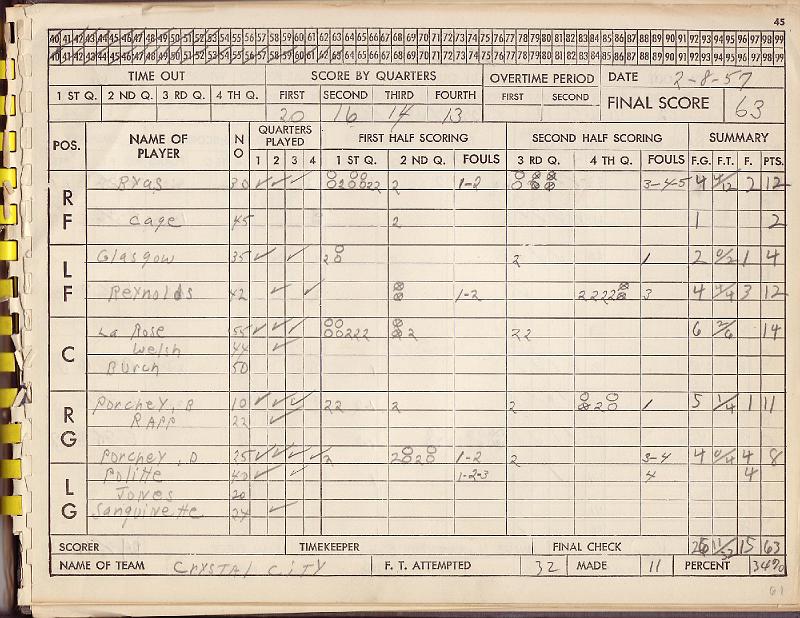 45
40 41 42 43 44 45 46 47 48 49 50 51 52 53 54 55 56 57 58 59 60 61 62 63 64 65 66 67 68 69 70 71 72 73 74 75 76 77 78 79 80 81 82 83 84 85 86 87 88 89 90 91 92 93 94 95 96 97 98 99
40 41 42 43 44 45 46 47 48 49 50 51 52 53 54 55 56 57 58 59 60 61 62 63 64 65 66 67 68 69 70 71 72 73 74 75 76 77 78 79 80 81 82 83 84 85 86 87 88 89 90 91 92 93 94 95 96 97 98 99
TIME OUT SCORE BY QUARTERS OVERTIME PERIOD DATE 2-8-57
1 ST Q. 2 ND Q. 3 RD Q. 4 TH Q. FIRST SECOND THIRD FOURTH FIRST SECOND FINAL SCORE 63
20 16 14 13
POS. NAME OF PLAYER NO QUARTERS PLAYED FIRST HALF SCORING SECOND HALF SCORING SUMMARY
1 2 3 4 1 ST Q. 2 ND Q. FOULS 3 RD Q. 4 TH Q. FOULS F.G. F.T. F. PTS.
RF
30 2 1-2 3-4-5 4 4/12 2 12
Cage 45 2 1 2
LF
Glasgow 35 2 2 1 2 0/2 1 4
Reynolds 42 1-2 2222 3 4 4/4 3 12
C
La Rose 55 222 2 22 6 2/6 14
Welsh 44
Burch 50
RG
Porchey, B 10 22 2 2 2 1 5 1/4 1 11
Rapp 22
Porchey, D 25 2 2 2 1-2 2 3-4 4 0/4 4 8
LG
Politte 40 1-2-3 4 4
Jones 20
Sanguinette 24
SCORER TIMEKEEPER FINAL CHECK 26 11/32 15 63
NAME OF TEAM Crystal City F. T. ATTEMPTED 32 MADE 11 PERCENT 34%
61